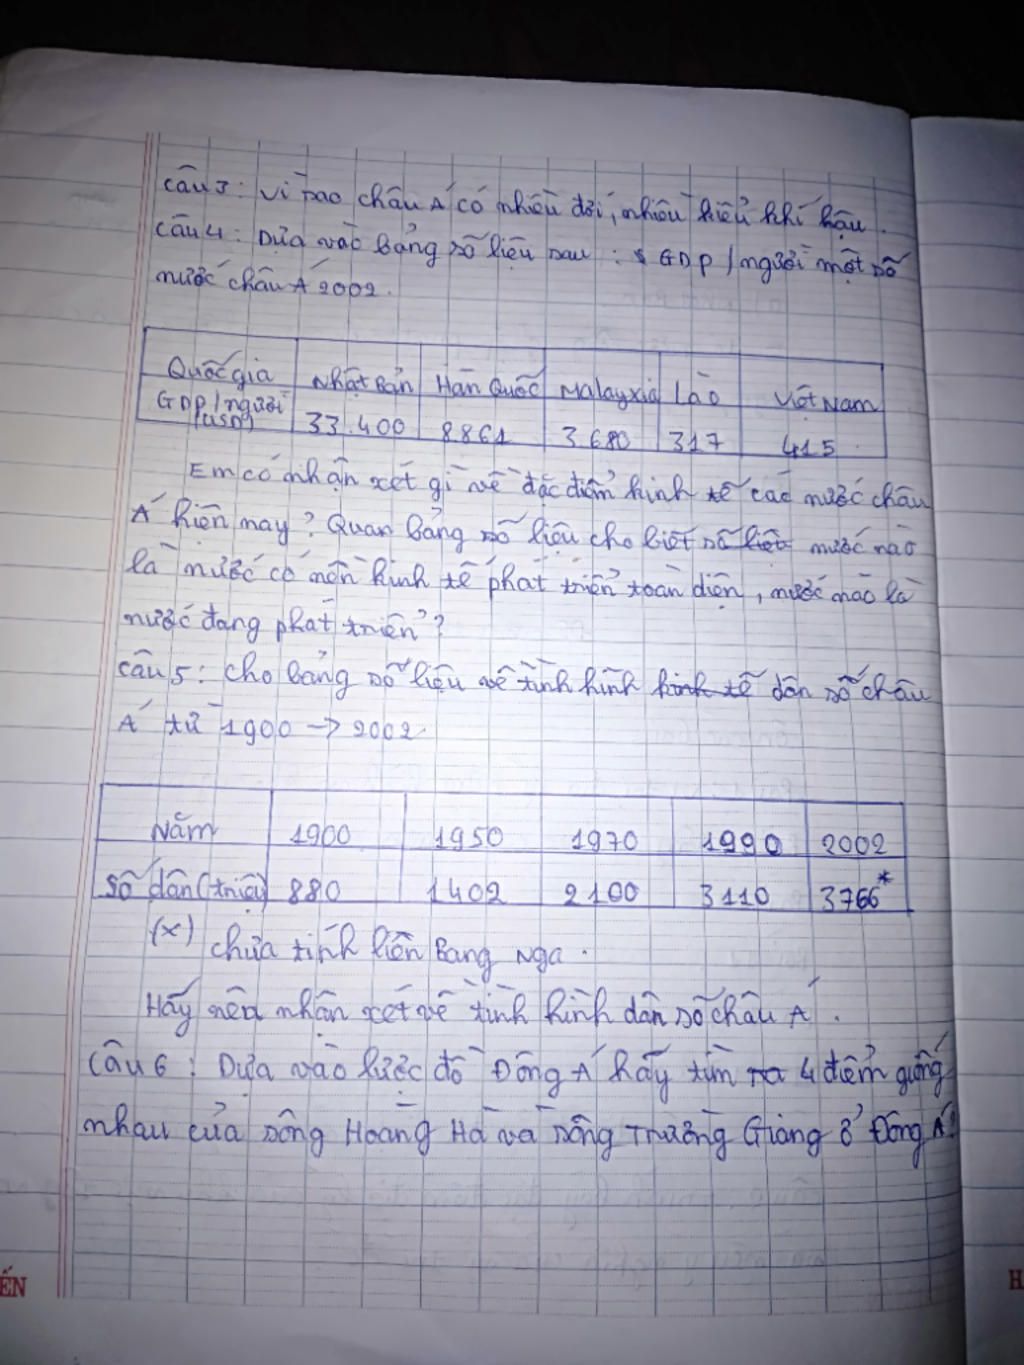 Câu 3: Vì sao châu Á có nhiều đới, nhiều kiểu khí hậu.
Câu 4: Dựa vào bảng số liệu sau: GDP/người một số
nước châu Á 2002.
Quốc gia Nhật Bản Hàn Quốc Malayxia Lào Việt Nam
GDP/người (USD) 33.400 8861 3680 317 415
Em có nhận xét gì về đặc điểm kinh tế các nước châu
Á hiện nay? Quan bảng số liệu cho biết số liệu nước nào
là nước có nền kinh tế phát triển toàn diện, nước nào là
nước đang phát triển?
Câu 5: Cho bảng số liệu về tình hình kinh tế dân số châu
Á từ 1900 -> 2002.
Năm 1900 1950 1970 1990 2002
Số dân (triệu) 880 1402 2100 3110 3766*
(x) chưa tính liên Bang Nga.
Hãy nêu nhận xét về tình hình dân số châu Á.
Câu 6: Dựa vào lược đồ Đông Á hãy tìm ra 4 điểm giống
nhau của sông Hoàng Hà và sông Trường Giang ở Đông Á?
ẾN
H